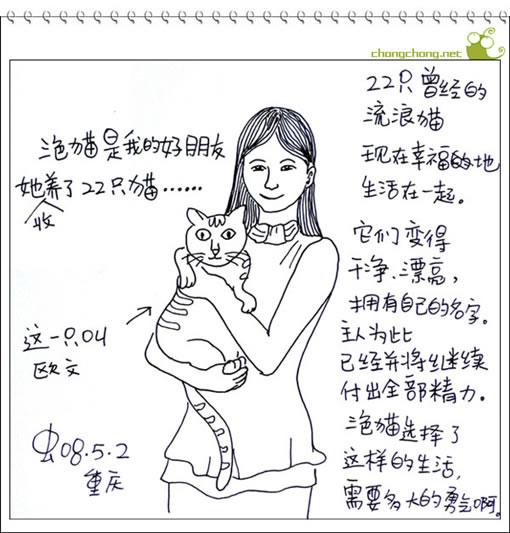 chongchong.net
泡猫是我的好朋友
她养了22只猫……
收
这一只叫
欧文
虫08.5.2
重庆
22只曾经的
流浪猫
现在幸福地
生活在一起。
它们变得
干净、漂亮，
拥有自己的名字。
主人为此
已经并将继续
付出全部精力。
泡猫选择了
这样的生活，
需要多大的勇气啊。